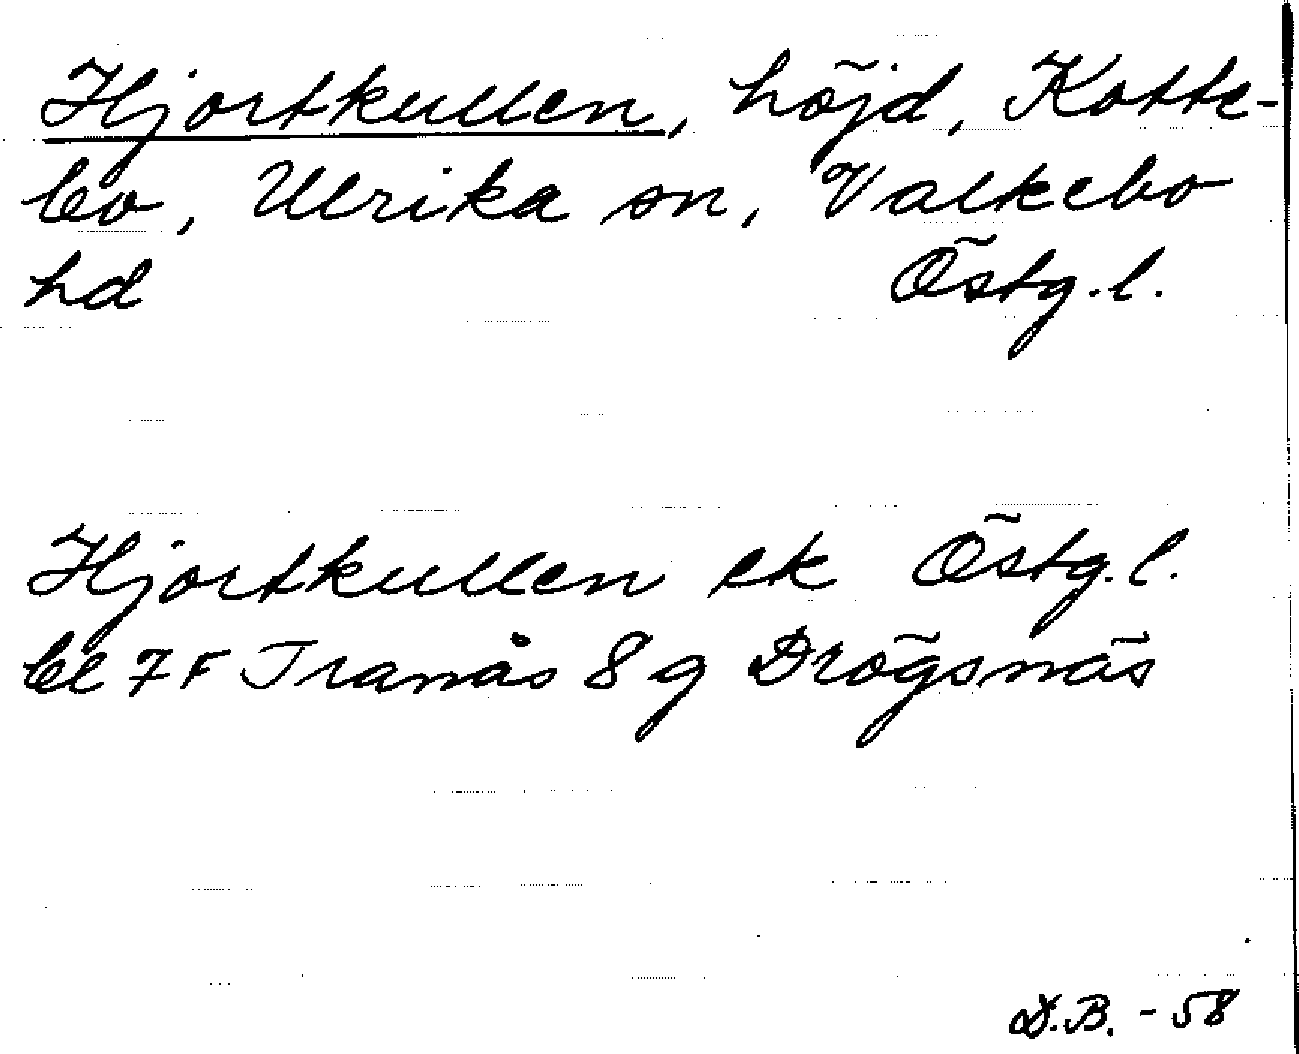 Hjortkullen, höjd, Kotte-
bo, Ulrika sn, Valkebo
hd Östg.l.
Hjortkullen ek Östg.l.
bl 7F Tranås 8g Drögsnäs
D.B. - 58